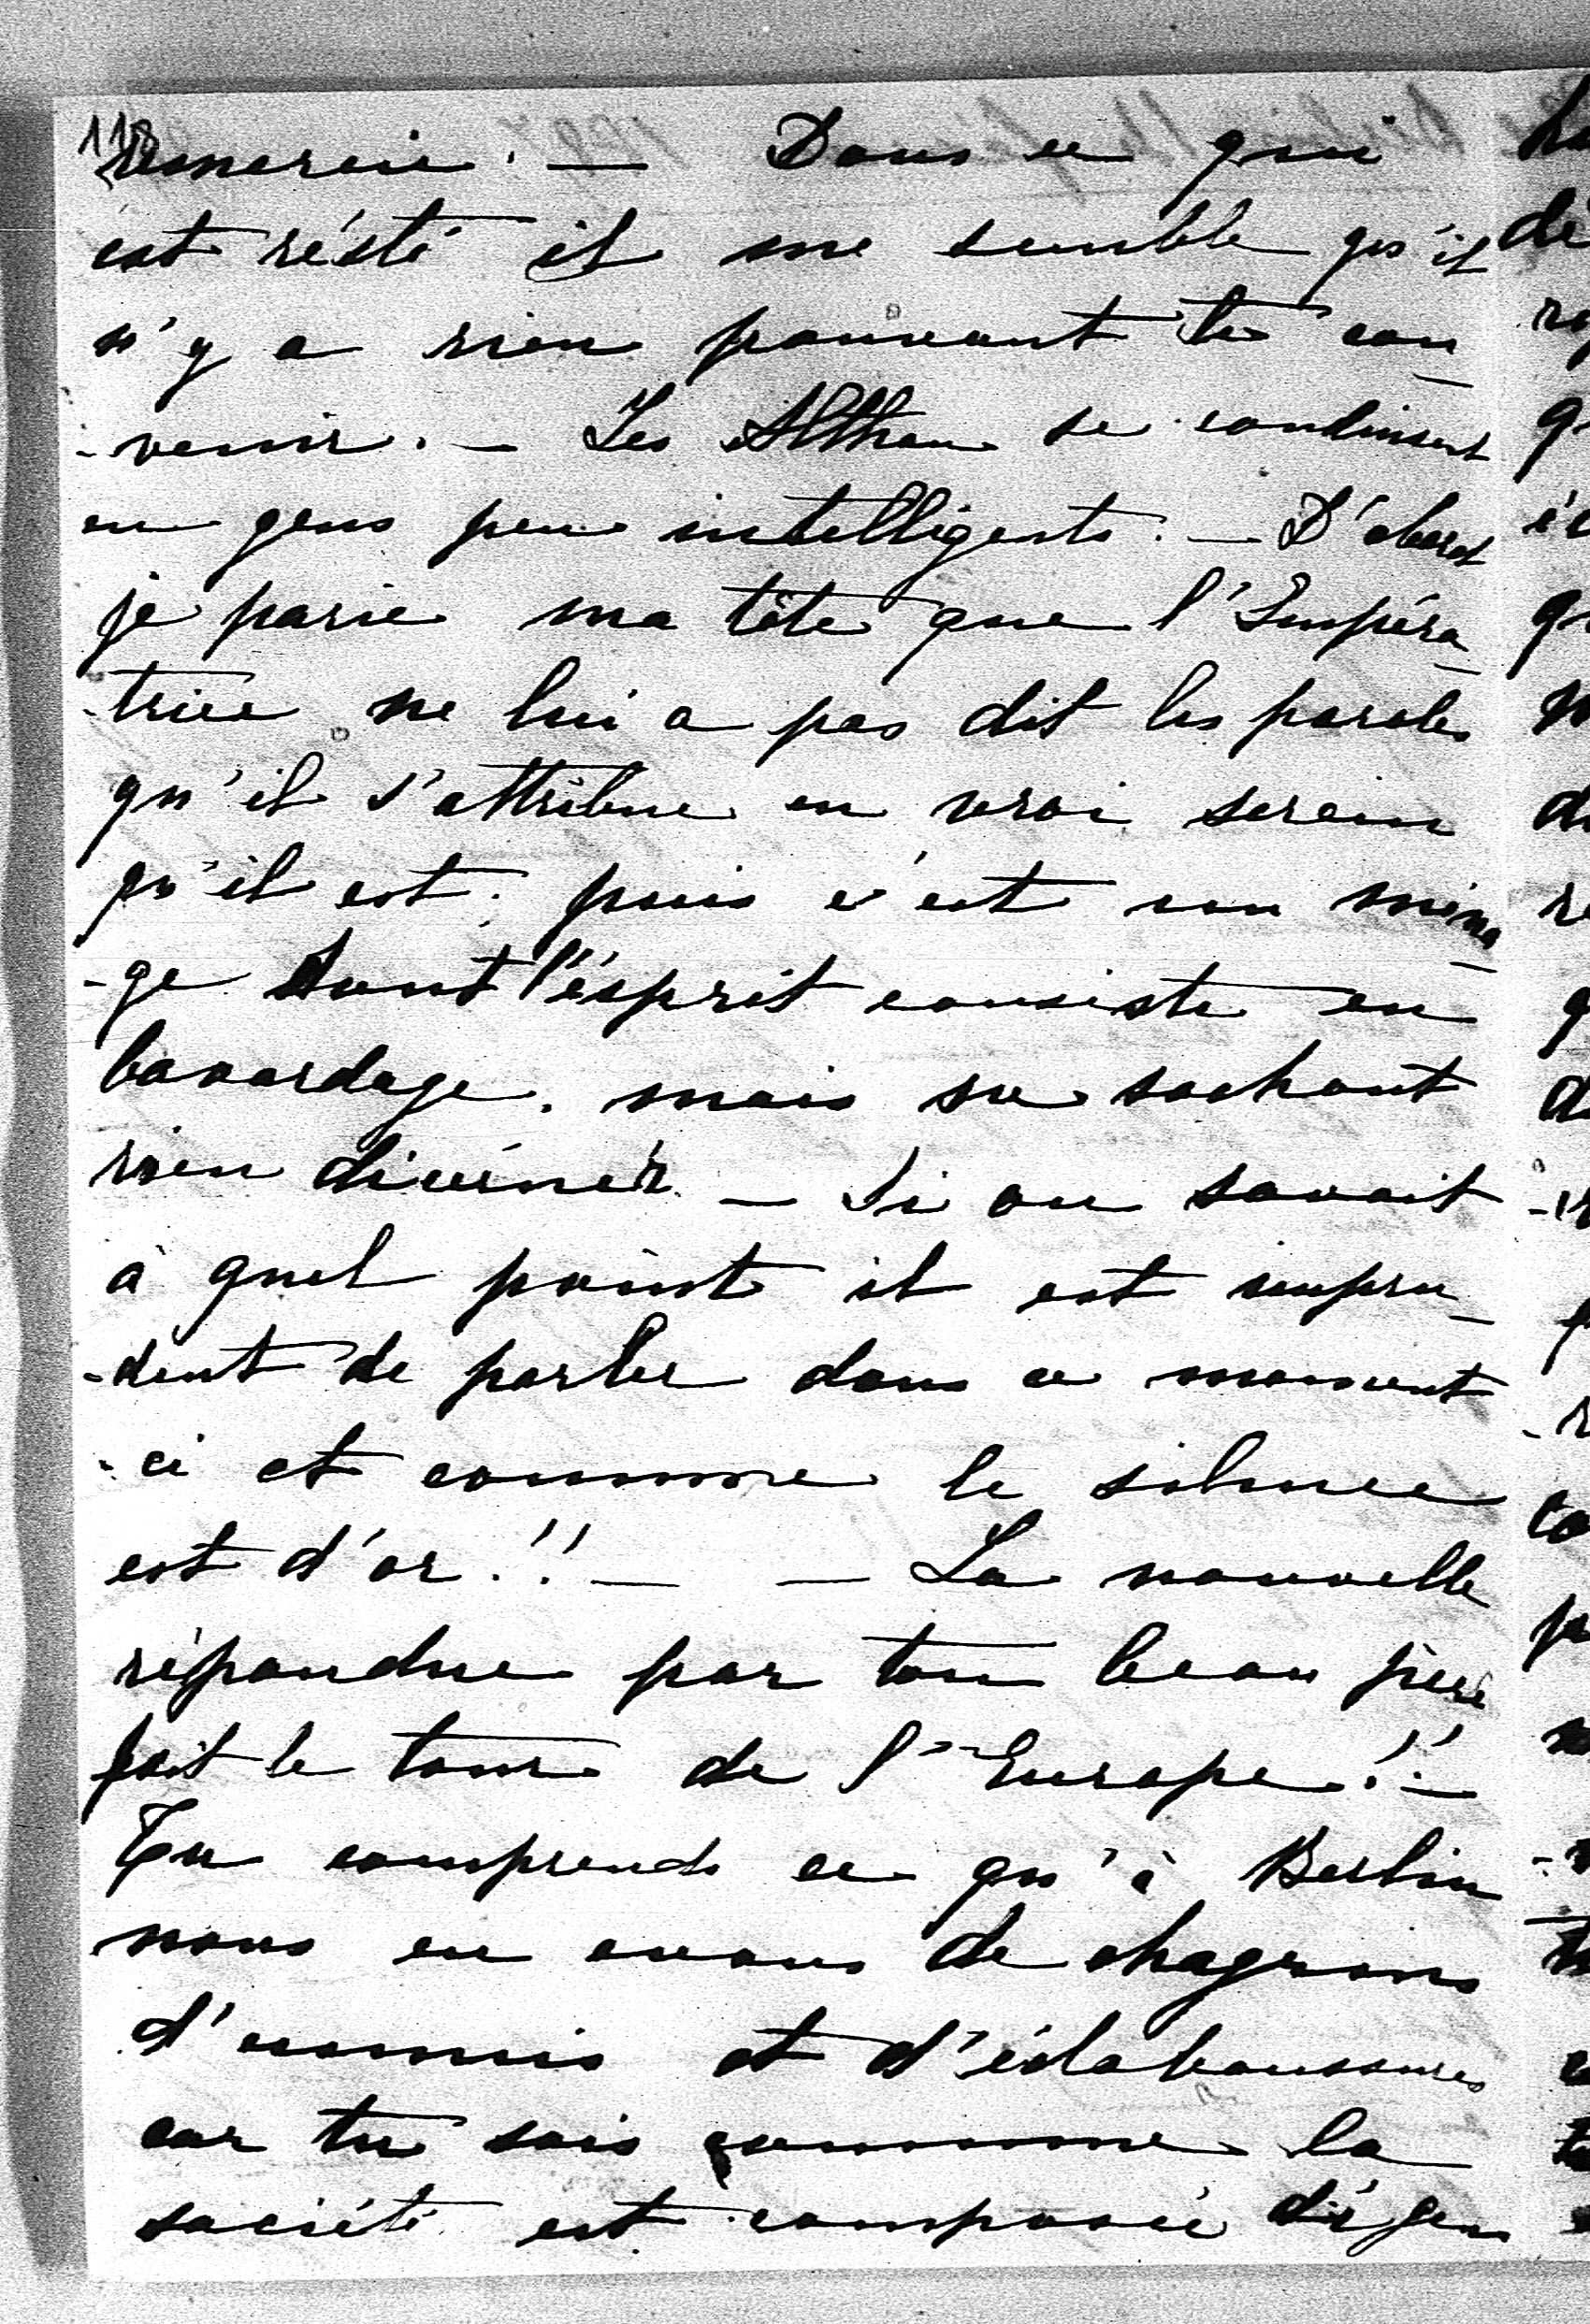 118
remercie. — Dans ce qui
est résté il me semble qu'il
n'y a rien pouvant te con_
-venir. — Les Althan se conduisent
en gens peu intelligents. — D'abord
je parie ma tête que l'Impéra_
-trice ne lui a pas dit les paroles
qu'il s'attribue en vrai serein
qu'il est. puis c'est un ména_
-ge dont l'ésprit consiste en
bavardage. mais ne sachant
rien dicérner — Si on savait
à quel point il est impru_
-dent de parler dans ce moment
-ci et comme le silence
est d'or!! — — La nouvelle
répandue par ton beau père
fait le tour de l'Europe!—
Tu comprends ce qu'à Berlin
nous en avons de chagrins
d'ennuis et d'éclaboussures
car tu sais comme la
société est composée dé gens